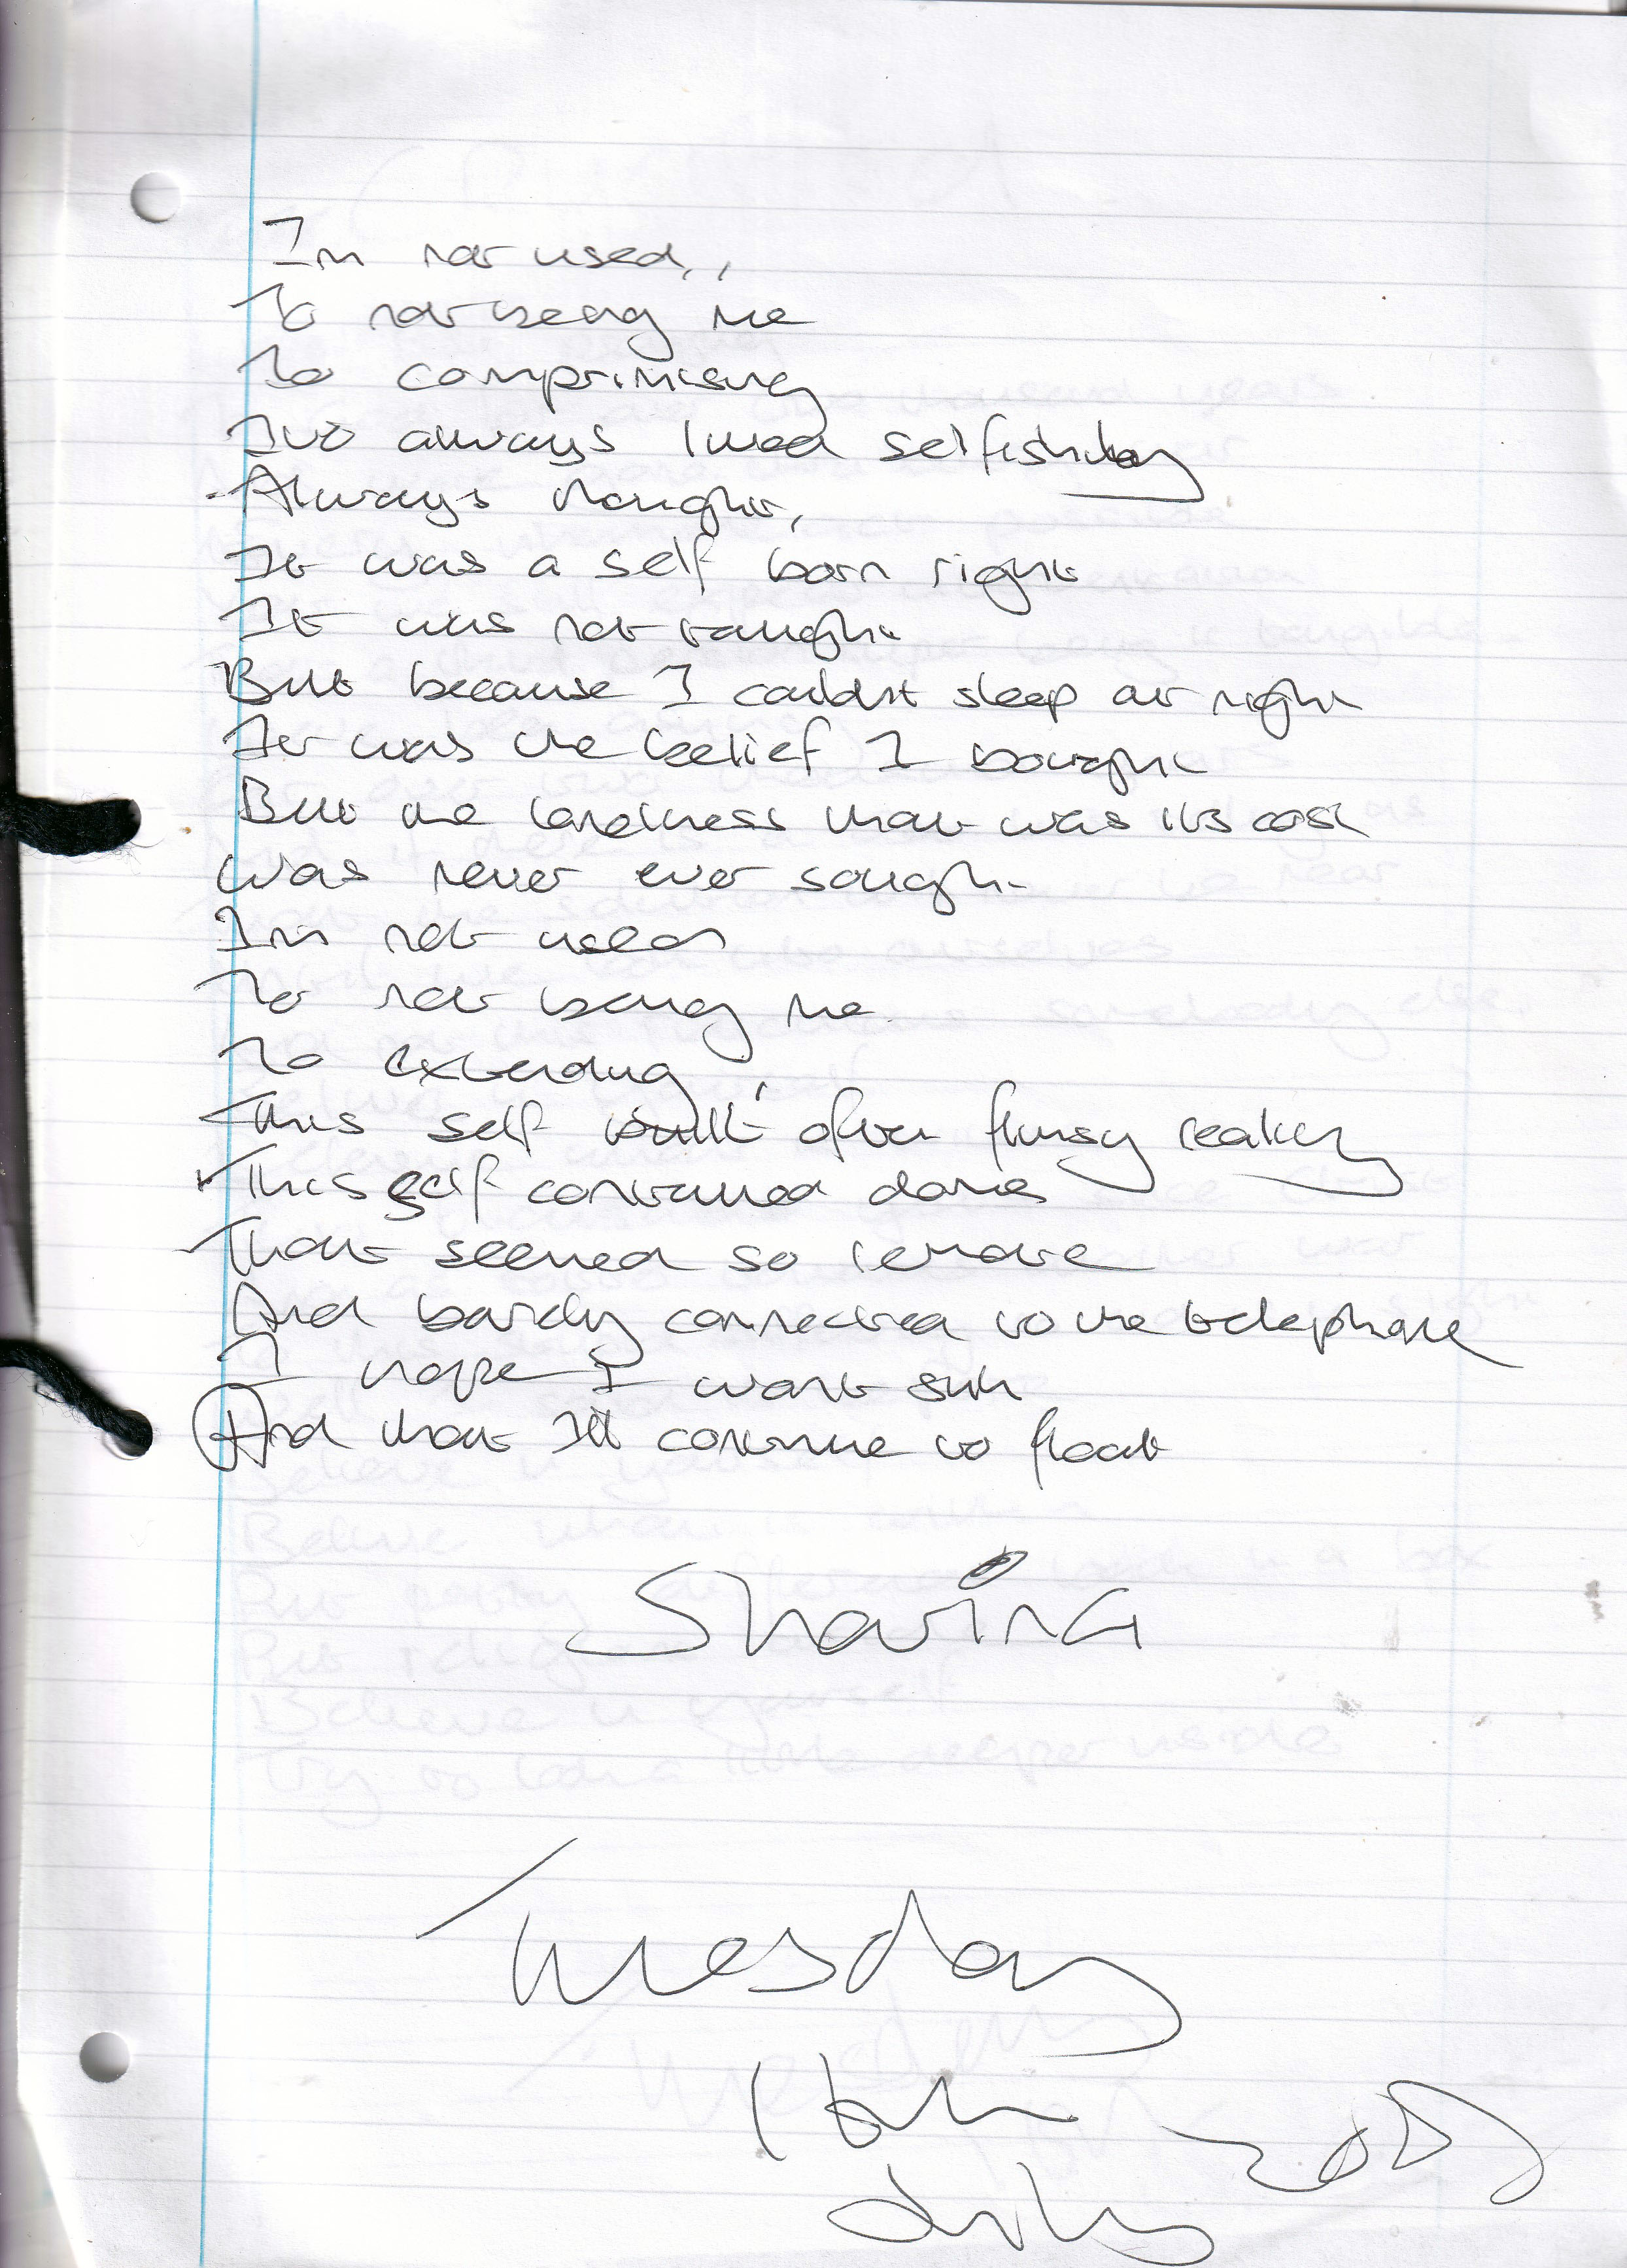 Im not used,,
To not being me
To comprimising
Ive always lived selfishly
Always thought,
It was a self born right
It was not taught
But because I couldnt sleep at night
It was the belief I bought
But the loneliness that was its cost
Was never ever sought
Im not used
To not being me
To extending,
This self built often flimsy reality
This self contained
That seemed so remote
And barely connected to the telephone
I hope I wont sink
And that Ill continue to float
Tuesday
July